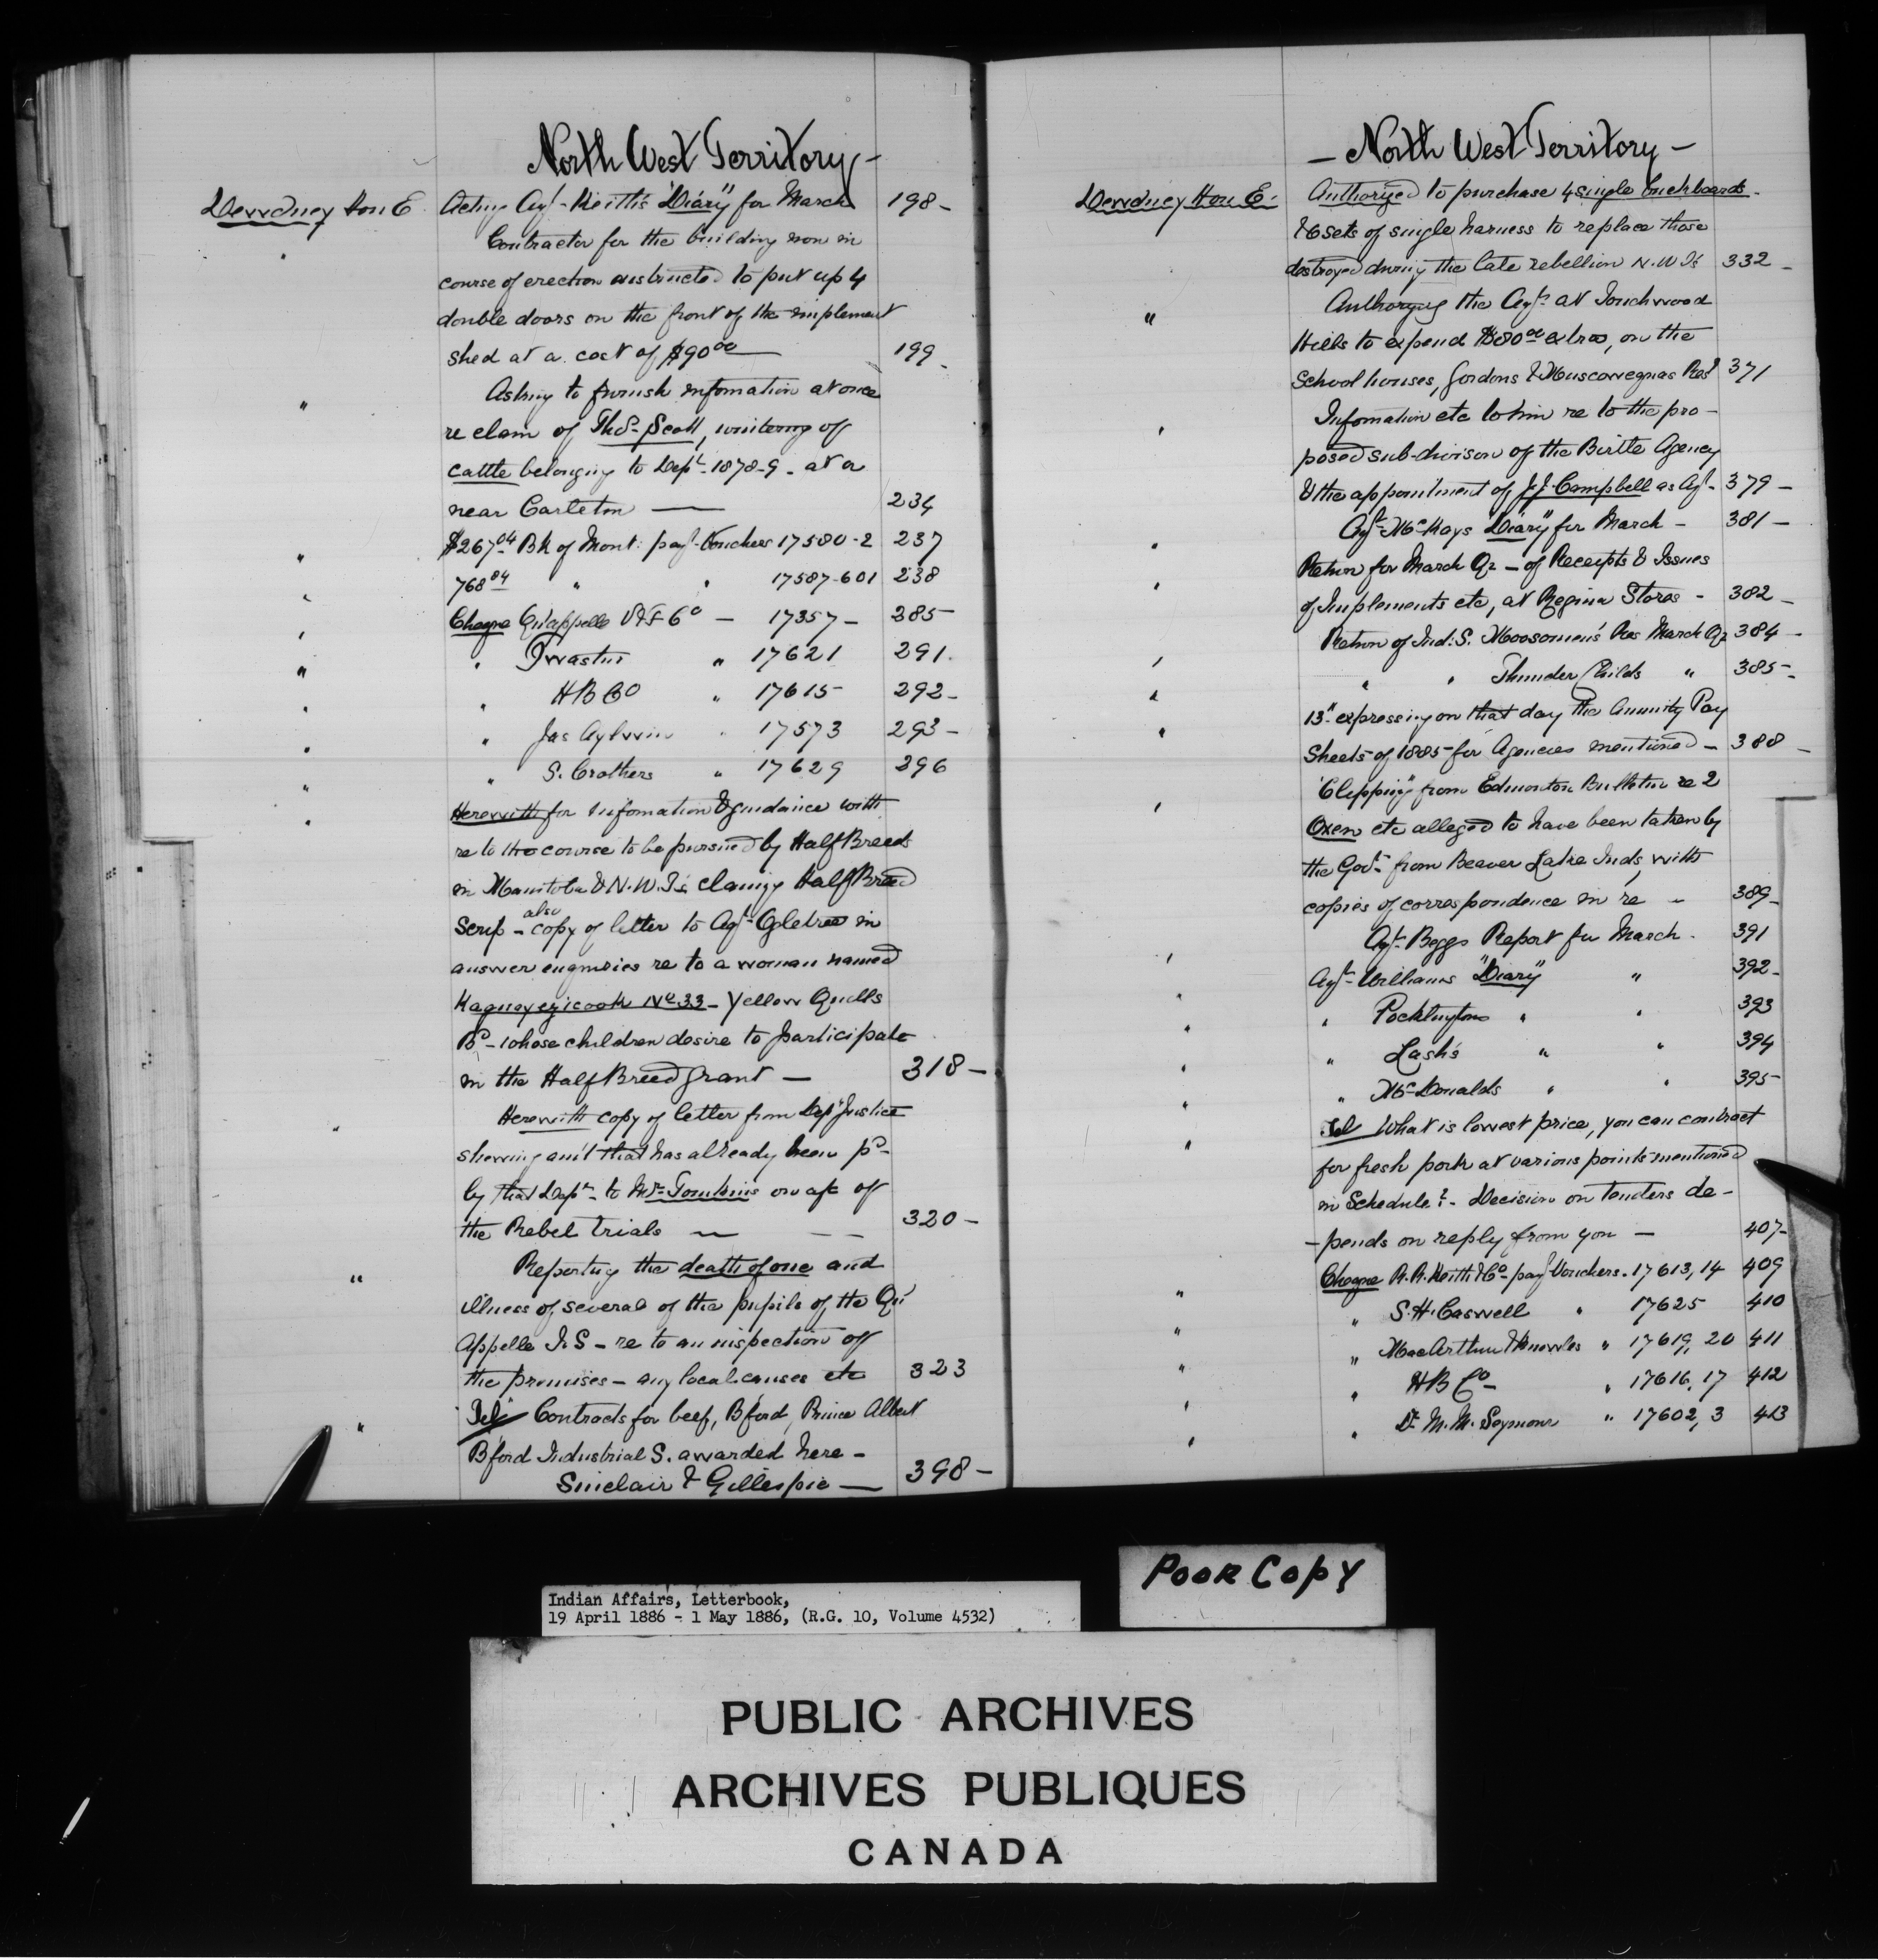 North West Territory -
Dewdney Hon E. Acting Agt - Keith's "Diary" for March 198 -
" Contractor for the building now in
course of erection instructed to put up 4
double doors on the front of the implement
shed at a cost of $90 00 199 -
" Asking to furnish infomation at once
re claim of Thos. Scott, wintering of
cattle belonging to Dept. 1878-9 - at or
near Carleton — 234
" $267 04 Bk of Mont: payt Vouchers 17580-2 237
" 768 84 " " 17587-601 238
" Cheque Qu'appelle V & F Co — 17357 - 285
" " " 17621 291
" " H B Co " 17615 292 -
" " Jas Aylwin " 17573 293 -
" " S. Crothers " 17629 296
" Herewith for infomation & guidance with
re to the course to be pursued by Half Breeds
in Manitoba & N.W.T's claimg Half Breed
Scrip - also copy of letter to Agt - Ogletree in
answer enquiries re to a woman named
No 33 - Yellow Quills
Bd - whose children desire to participate
in the Half Breed grant — 318 -
" Herewith copy of letter from Dep Justice
shewing am't that has already been pd -
by that Dept - to Mr. Tomkins on a/c of
the Rebel trials — — — 320 -
" Reporting the death of one and
illness of several of the pupils of the Qu'
Appelle I. S - re to an inspection of
the premises - any local causes etc 323
" "Tel" Contracts for beef, B'ford, Prince Albert
B'ford Industrial S. awarded here -
Sinclair & Gillespie — 398 -
- North West Territory -
Dewdney Hon E. Authorized to purchase 4 single buckboards -
& 6 sets of single harness to replace those
destroyed during the late rebellion N.W.T's 332 -
" Authorizing the Agt. at Touchwood
Hills to expend $80 00 extra, on the
School houses, Gordons & Muscowequas Resr 371
" Infomation etc to him re to the pro-
posed sub-divison of the Birtle Agency
& the appointment of J.J. Campbell as Agt - 379 -
" Agt - McKays "Diary" for March - 381 -
" Return for March Qr - of Receipts & Issues
of Implements etc, at Regina Stores - 382 -
" Return of Ind. S. Moosomin's Res March Qr 384 -
" " " Thunder Childs " 385 -
" 13" expressing on that day the Annuity Pay
Sheets of 1885 for Agencies mentioned - 388 -
" "Clipping" from Edmonton Bulletin re 2
Oxen etc alleged to have been taken by
the Govt - from Beaver Lake Inds, with
copies of correspondence in re - 389 -
" Agt - Beggs Report for March - 391
" Agt - Williams "Diary" " 392 -
" " Pocklingtons " " 393
" " Lash's " " 394
" " McDonalds " " 395 -
" Tel What is lowest price, you can contract
for fresh pork at various points mentioned
in Schedule? - Decision on tenders de-
-pends on reply from you — 407 -
" Cheque R.R. Keith & Co - payt Vouchers - 17613,14 409
" " S.H. Caswell " 17625 410
" " MacArthur & Knowles " 17619, 20 411
" " H B Co - " 17616, 17 412
" " Dr. M. M. Seymour " 17602, 3 413
POOR COPY
Indian Affairs, Letterbook,
19 April 1886 - 1 May 1886, (R.G. 10, Volume 4532)
PUBLIC ARCHIVES
ARCHIVES PUBLIQUES
CANADA